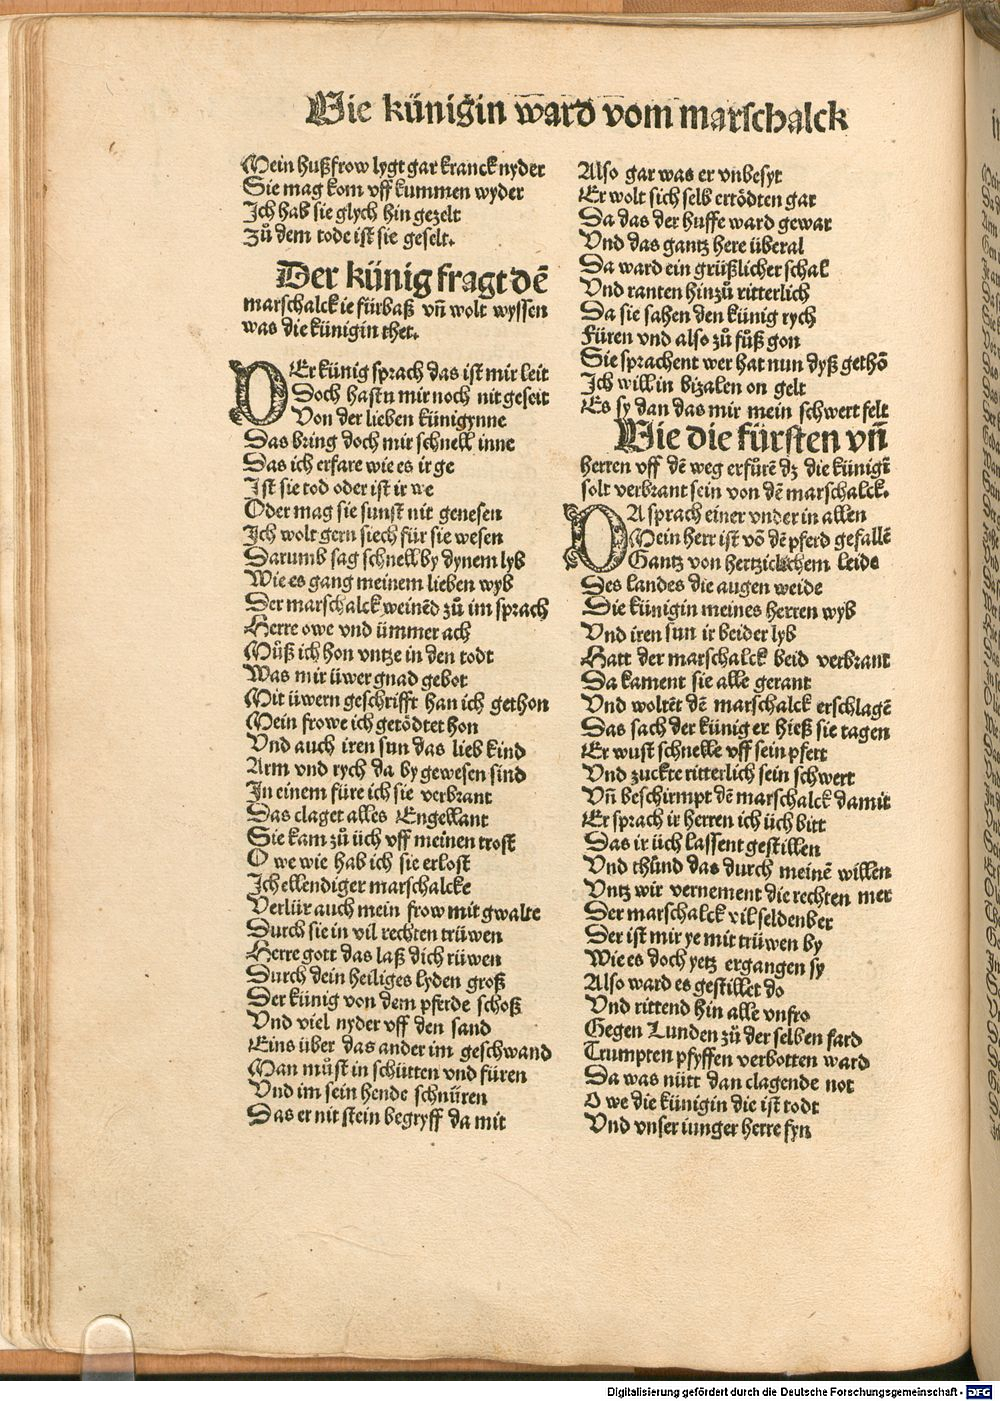 Die künigin ward vom marschalck
Mein hußfrow lygt gar kranck nyder
Sie mag kom vff kummen wyder
Ich hab sie glych hin gezelt
Zů dem tode ist sie geselt.
Der künig fragt dē
marschalck ie fürbaß vñ wolt wyssen
was die künigin thet.
DEr künig sprach das ist mir leit
Doch hastu mir noch nit geseit
Von der lieben künigynne
Das bring doch mir schnell inne
Das ich erfare wie es ir ge
Ist sie tod oder ist ir we
Oder mag sie sunst nit genesen
Ich wolt gern siech für sie wesen
Darumb sag schnell by dynem lyb
Wie es gang meinem lieben wyb
Der marschalck weinēd zů im sprach
Herre owe vnd ümmer ach
Můß ich hon vntze in den todt
Was mir üwer gnad gebot
Mit üwern geschrifft han ich gethon
Mein frowe ich getödtet hon
Vnd auch iren sun das lieb kind
Arm vnd rych da by gewesen sind
In einem füre ich sie verbrant
Das claget alles Engellant
Sie kam zů üch vff meinen trost
O we wie hab ich sie erlost
Ich ellendiger marschalcke
Verlür auch mein frow mit gwalte
Durch sie in vil rechten trüwen
Herre gott das laß dich rüwen
Durch dein heiliges lyden groß
Der künig von dem pferde schoß
Vnd viel nyder vff den sand
Eins über das ander im geschwand
Man můst in schütten vnd füren
Vnd im sein hende schnüren
Das er nit stein begryff da mit
Also gar was er vnbesyt
Er wolt sich selb ertödten gar
Da das der huffe ward gewar
Vnd das gantz here überal
Da ward ein grüßlicher schal
Vnd ranten hinzů ritterlich
Da sie sahen den künig rych
Füren vnd also zů fůß gon
Sie sprachent wer hat nun dyß gethō
Ich will in bizalen on gelt
Es sy dan das mir mein schwert felt
Wie die fürsten vñ
herren vff dē weg erfůrē dz die künigī
solt verbrant sein von dē marschalck.
DA sprach einer vnder in allen
Mein herr ist vō dē pferd gefallē
Gantz von hertziclichem leide
Des landes die augen weide
Die künigin meines herren wyb
Vnd iren sun ir beider lyb
Hatt der marschalck beid verbrant
Da kament sie alle gerant
Vnd woltēt dē marschalck erschlagē
Das sach der künig er hieß sie tagen
Er wust schnelle vff sein pfert
Vnd zuckte ritterlich sein schwert
Vñ beschirmpt dē marschalck damit
Er sprach ir herren ich üch bitt
Das ir üch lassent gestillen
Vnd thůnd das durch meinē willen
Vntz wir vernement die rechten mer
Der marschalck vil seldenber
Der ist mir ye mit trüwen by
Wie es doch yetz ergangen sy
Also ward es gestillet do
Vnd rittend hin alle vnfro
Gegen Lunden zů der selben fard
Trumpten pfyffen verbotten ward
Da was nütt dan clagende not
O we die künigin die ist todt
Vnd vnser iunger herre fyn
Digitalisierung gefördert durch die Deutsche Forschungsgemeinschaft - DFG